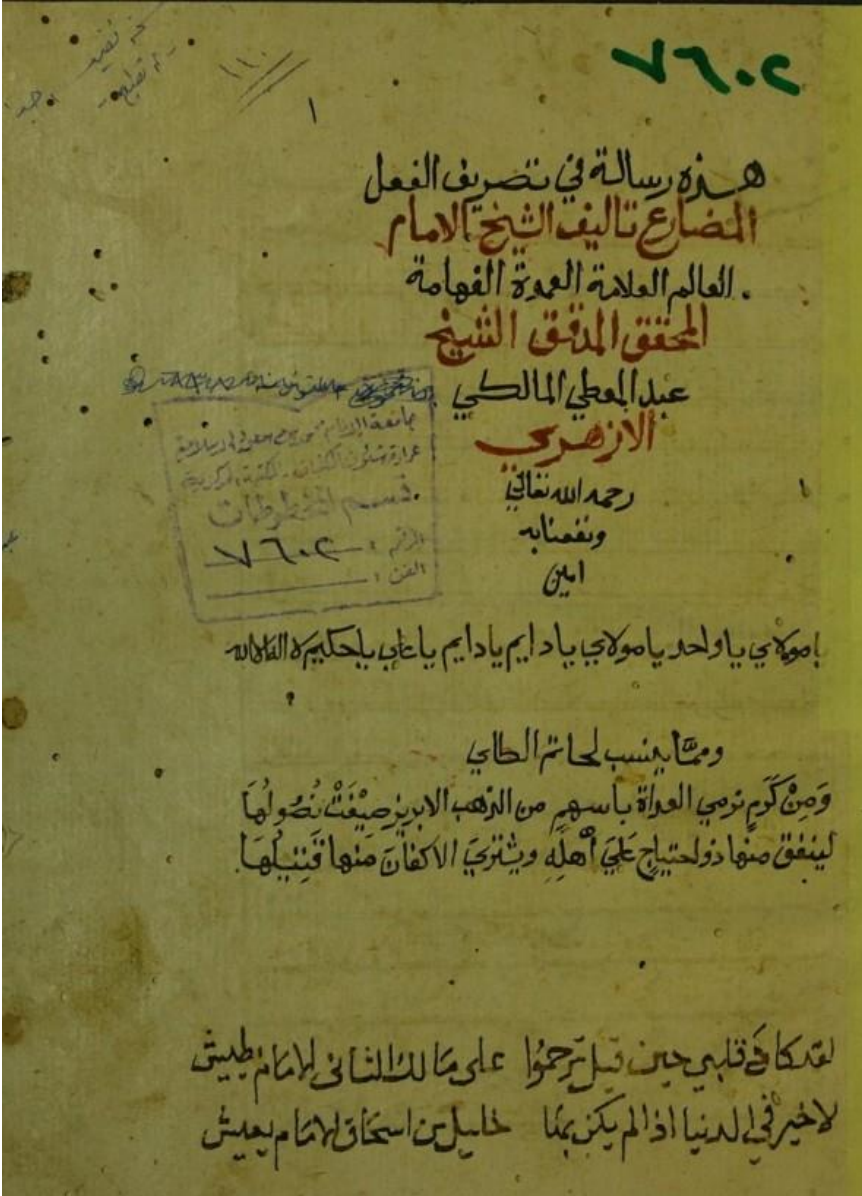 ٧٦٠٢
١١٠
١
هذه رسالة في تصريف الفعل
المضارع تاليف الشيخ الامام
العالم العلامة العمدة الفهامة
المحقق المدقق الشيخ
عبد المعطي المالكي
الازهري
رحمه الله تعالي
ونفعنا به
امين
قسم المخطوطات
الرقم : ٧٦٠٢
الفن :
يامولاي ياواحد يامولاي يادايم يادايم ياحكيم
ومما ينسب لحاتم الطاي
وَمِنْ كَرَمٍ نرمي العداة باسهمٍ من الذهب الابريز صِيْغَتْ نُصُولُهَا
لينفق منها ذو احتياجٍ عَلَيَ أَهْلِهِ ويشتريَ الاكفانَ منها قَتِيلُهَا
لقد كاد قلبي حين قيل ترحموا على مالك الثاني الامام يطيش
لا خير في الدنيا اذا لم يكن بها خليل بن اسحاق الامام يعيش